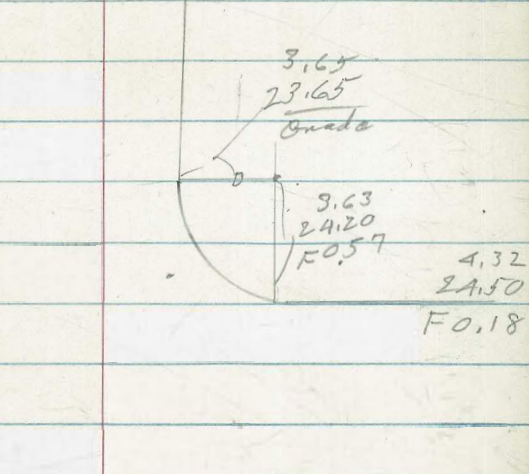 3.65
23.65
Grade
D
3.63
24.20
F 0.57
4.32
24.50
F 0.18